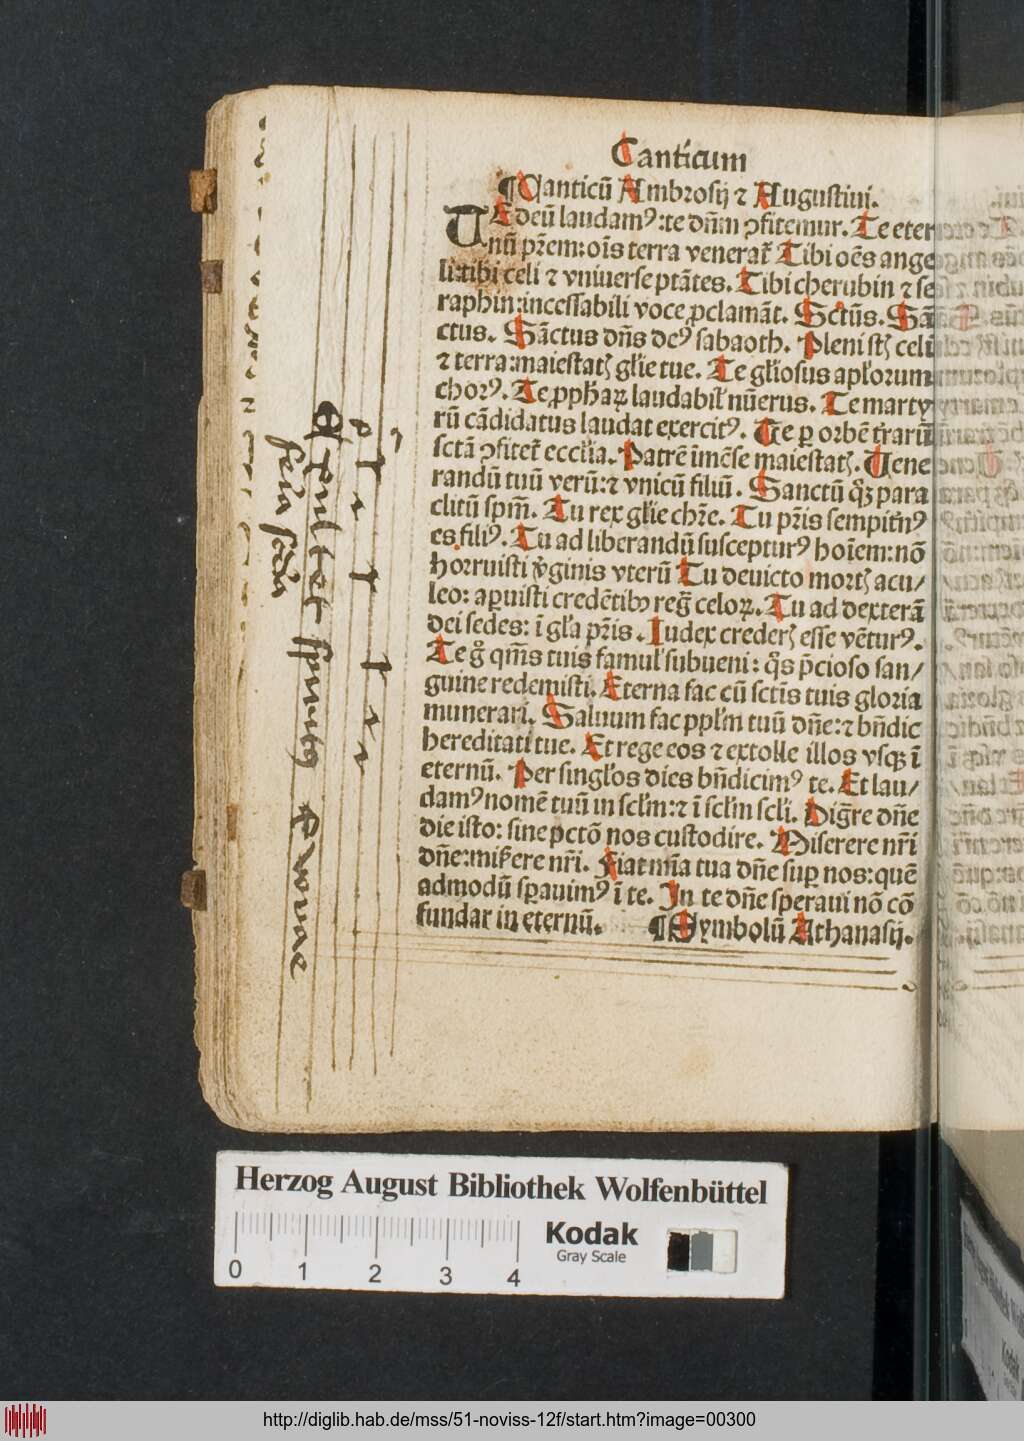 Canticum
¶Canticū Ambrosij ⁊ Augustini.
TE deū laudamꝰ:te dn̄m ꝯfitemur. Te eter
nū pr̄em:oīs terra venerat᷑ Tibi oēs ange
li:tibi celi ⁊ vniuerse ptātes. Tibi cherubin ⁊ se
raphin:incessabili voce ꝓclamāt. Sct̄ūs. Sā
ctus. Sāctus dn̄s deꝰ sabaoth. Pleni st̄ꝫ celi
⁊ terra:maiestatꝫ gl̄ie tue. Te gl̄iosus apl̄orum
chorꝰ. Te ꝓpħaꝝ laudabil̄ nūerus. Te marty
rū cādidatus laudat exercitꝰ. Te ꝑ orbē t̄rarū
sctā ꝯfitet᷑ eccl̄ia. Patrē īmēse maiestatꝫ. Uene
randū tuū verū:⁊ vnicū filiū. Sanctū qͦꝫ para
clitū spm̄. Tu rex gl̄ie chr̄e. Tu pr̄is sempit̄nꝰ
es filiꝰ. Tu ad liberandū suscepturꝰ hoīem:nō
horruisti v̄ginis vterū Tu deuicto mortꝫ acu/
leo: aꝑuisti credētibꝫ reg̅ celoꝝ. Tu ad dexterā
dei sedes: ī gl̄a pr̄is. Iudex crederꝫ esse vēturꝰ.
Te gͦ qm̄s tuis famul̄ subueni: qͦs p̄cioso san/
guine redemisti. Eterna fac cū sct̄is tuis gloria
munerari. Saluum fac ppl̄m tuū dn̄e:⁊ bn̄dic
hereditati tue. Et rege eos ⁊ extolle illos vsqꝫ ī
eternū. Per singl̄os dies bn̄dicimꝰ te. Et lau/
damꝰ nomē tuū in scl̄m:⁊ ī scl̄m scl̄i. Dig̅re dn̄e
die isto: sine pctō nos custodire. Miserere nr̄i
dn̄e:mis̄ere nr̄i. Fiat mīa tua dn̄e suꝑ nos:quē
admodū sꝑauimꝰ ī te. In te dn̄e speraui nō cō
fundar in eternū. ¶Symbolū Athanasij.
feria scd̄a
Herzog August Bibliothek Wolfenbüttel
Kodak
Gray Scale
0 1 2 3 4
http://diglib.hab.de/mss/51-noviss-12f/start.htm?image=00300